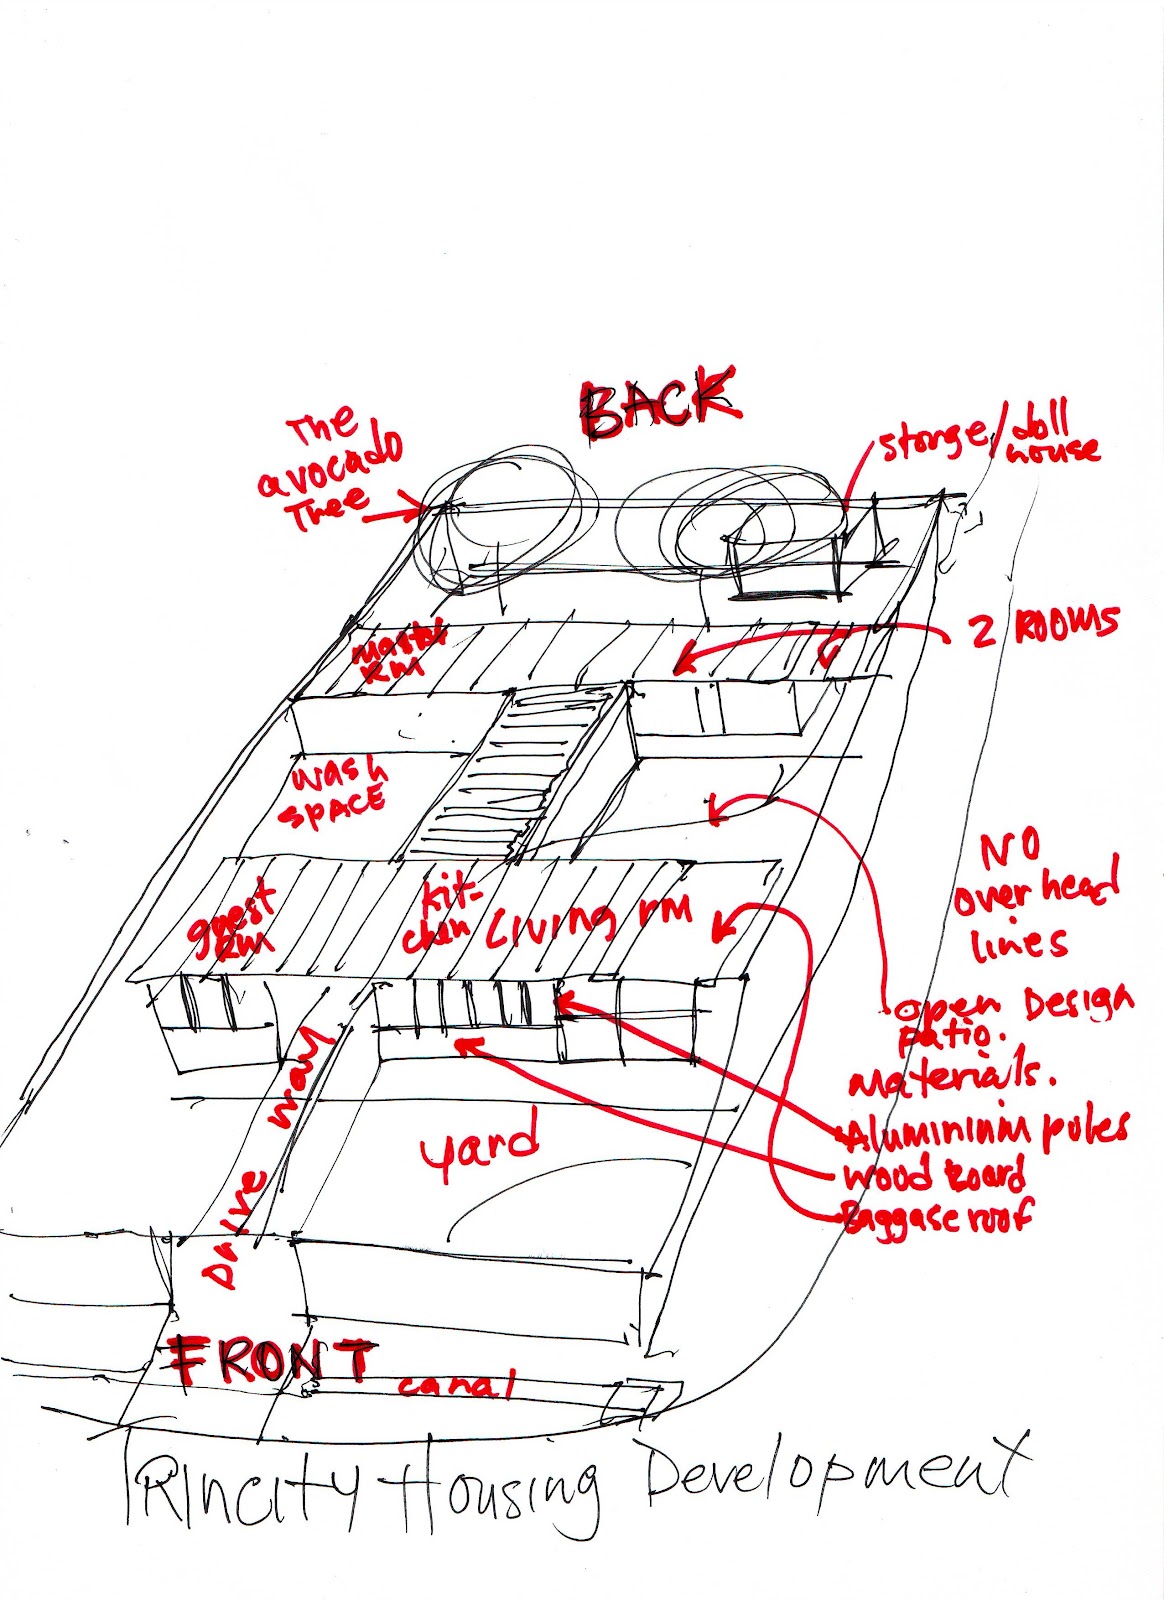 BACK
The
avocado
Tree
storge/doll
house
2 ROOMS
master
RM
wash
SPACE
NO
over head
lines
guest
RM
kit-
chen
Living rm
open Design
patio.
materials.
Aluminium poles
wood board
Baggase roof
Drive way
yard
FRONT
canal
TRINCITY Housing Development